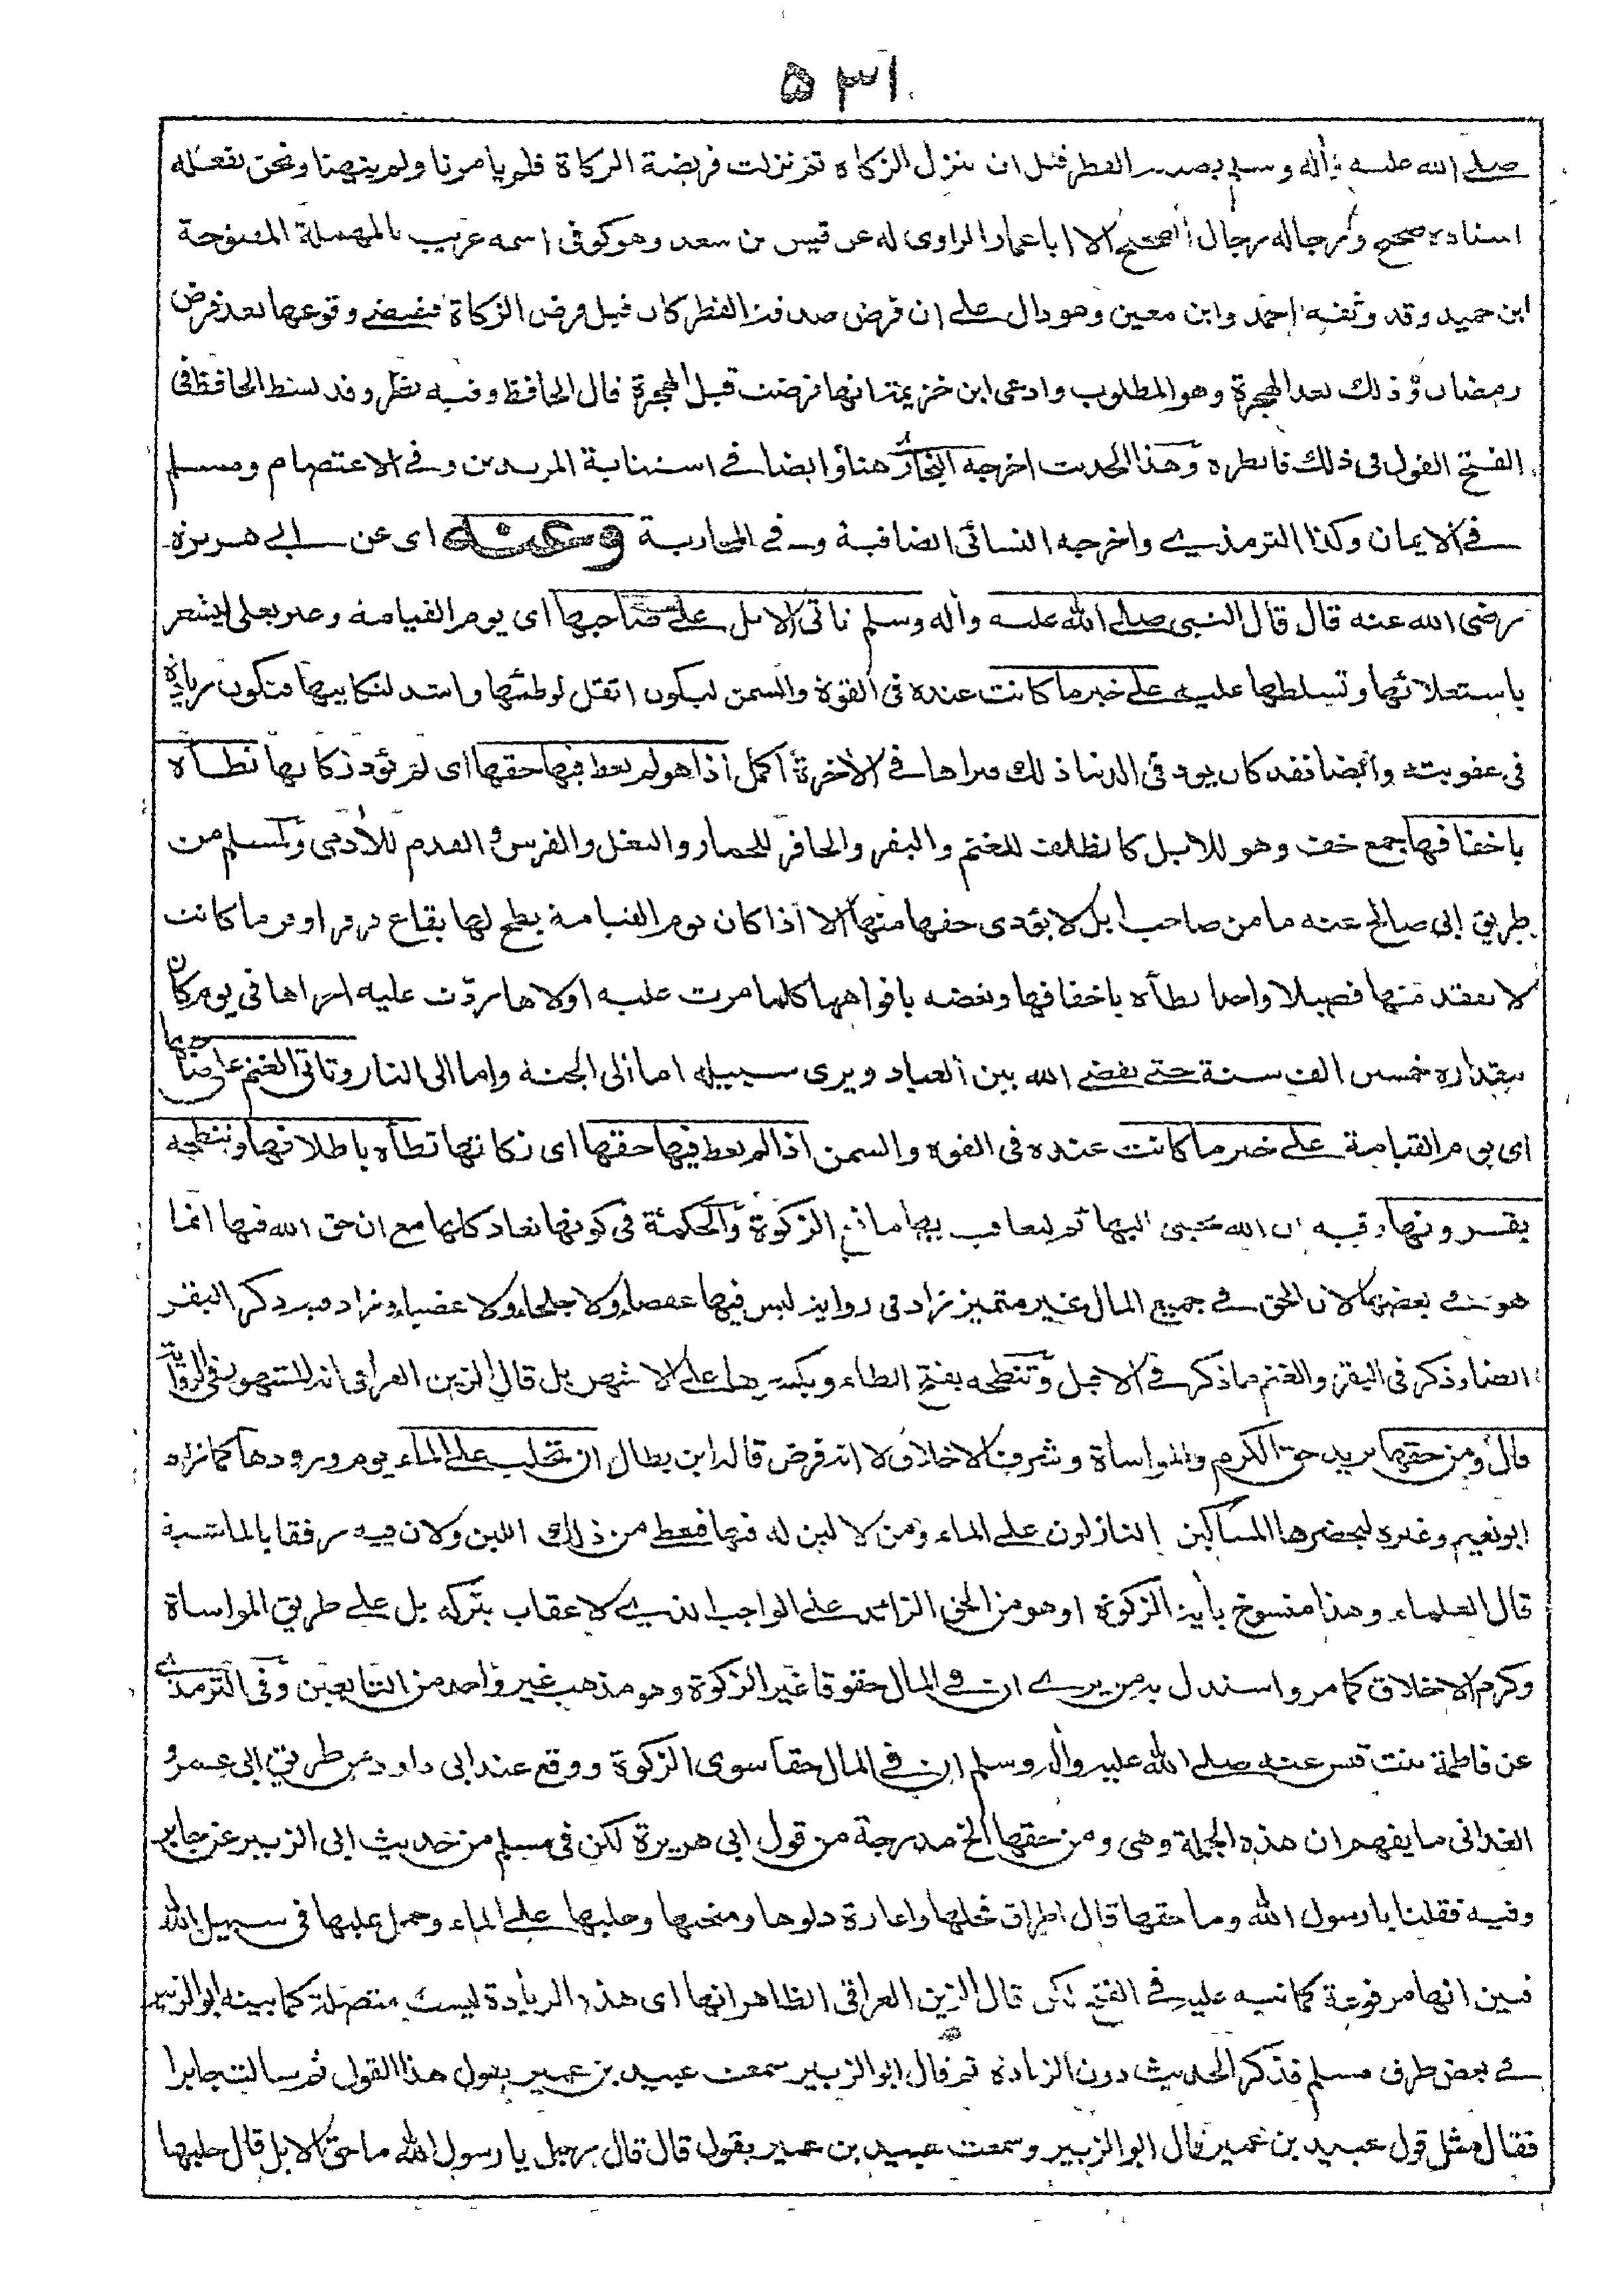 ٥٣١
صلى الله عليه وأله وسلم بصدقة الفطر قبل ان تنزل الزكاة ثم نزلت فريضة الزكاة فلم يأمرنا ولم ينهنا ونحن نفعله
اسناده صحيح ورجاله رجال الصحيح الا ابا عمار الراوى له عن قيس بن سعد وهو كوفى اسمه عريب بالمهملة المفتوحة
ابن حميد وقد وثقه احمد وابن معين وهو دال على ان فرض صدقة الفطر كان قبل فرض الزكاة فيقتضى وقوعها بعد فرض
رمضان وذلك بعد الهجرة وهو المطلوب وادعى ابن خزيمة انها فرضت قبل الهجرة قال الحافظ وفيه نظر وقد بسط الحافظ فى
الفتح القول فى ذلك فانظره وهذا الحديث اخرجه البخارى هنا وايضا فى استتابة المرتدين وفى الاعتصام ومسلم
فى الايمان وكذا الترمذى واخرجه النسائى ايضا فيه وفى المحاربة وعنه اى عن ابى هريرة
رضى الله عنه قال قال النبى صلى الله عليه وأله وسلم تاتى الابل على صاحبها اى يوم القيامة وعبر بعلى ليشعر
باستعلائها وتسلطها عليه على خير ما كانت عنده فى القوة والسمن ليكون اثقل لوطئها واشد لنكايتها فتكون زيادة
فى عقوبته وايضا فقد كان يود فى الدنيا ذلك فيراها فى الأخرة اكمل اذا هو لم يعط فيها حقها اى لم يؤد زكاتها تطأه
باخفافها جمع خف وهو للابل كالظلف للغنم والبقر والحافر للحمار والبغل والفرس والقدم للأدمى ولمسلم من
طريق ابى صالح عنه ما من صاحب ابل لا يؤدى حقها منها الا اذا كان يوم القيامة بطح لها بقاع قرقر اوفر ما كانت
لا يفقد منها فصيلا واحدا تطأه باخفافها وتعضه بافواهها كلما مرت عليه اولاها ردت عليه اخراها فى يوم كان
مقداره خمسين الف سنة حتى يقضى الله بين العباد ويرى سبيله اما الى الجنة واما الى النار وتاتى الغنم على صاحبها
اى يوم القيامة على خير ما كانت عنده فى القوة والسمن اذا لم يعط فيها حقها اى زكاتها تطأه باظلافها وتنطحه
بقرونها وفيه ان الله يحيى البهائم ليعاقب بها مانع الزكوة والحكمة فى كونها تعاد كلها مع ان حق الله فيها انما
هو فى بعضها لان الحق فى جميع المال غير متميز زاد فى رواية ليس فيها عقصاء ولا جلحاء ولا عضباء وزاد فيه ذكر البقر
ايضا وذكر فى البقر والغنم ما ذكر فى الابل وتنطحه بفتح الطاء وبكسرها على الاشهر بل قال الزين العراقى انه المشهور فى الرواية
قال ومن حقها يريد حق الكرم والمواساة وشرف الاخلاق لا انه فرض قاله ابن بطال ان تحلب على الماء يوم ورودها كما زاده
ابو نعيم وغيره ليحضرها المساكين النازلون على الماء ومن لا لبن له فيها فيعطى من ذلك اللبن ولان فيه رفقا بالماشية
قال العلماء وهذا منسوخ بأية الزكوة او هو من الحق الزائد على الواجب الذى لا عقاب بتركه بل على طريق المواساة
وكرم الاخلاق كما مر واستدل به من يرى ان فى المال حقوقا غير الزكوة وهو مذهب غير واحد من التابعين وفى الترمذى
عن فاطمة بنت قيس عنه صلى الله عليه واله وسلم ان فى المال حقا سوى الزكوة ووقع عند ابى داود من طريق ابى عمرو
الغدانى ما يفهم ان هذه الجملة وهى ومن حقها الخ مدرجة من قول ابى هريرة لكن فى مسلم من حديث ابى الزبير عن جابر
وفيه فقلنا يا رسول الله وما حقها قال اطراق فحلها واعارة دلوها ومنحتها وحلبها على الماء وحمل عليها فى سبيل الله
فبين انها مرفوعة كما نبه عليه فى الفتح لكن قال الزين العراقى الظاهر انها اى هذه الزيادة ليست متصلة كما بينه ابو الزبير
فى بعض طرق مسلم فذكر الحديث دون الزيادة ثم قال ابو الزبير سمعت عبيد بن عمير يقول هذا القول ثم سالت جابرا
فقال مثل قول عبيد بن عمير قال ابو الزبير وسمعت عبيد بن عمير يقول قال قال رجل يا رسول الله ما حق الابل قال حلبها